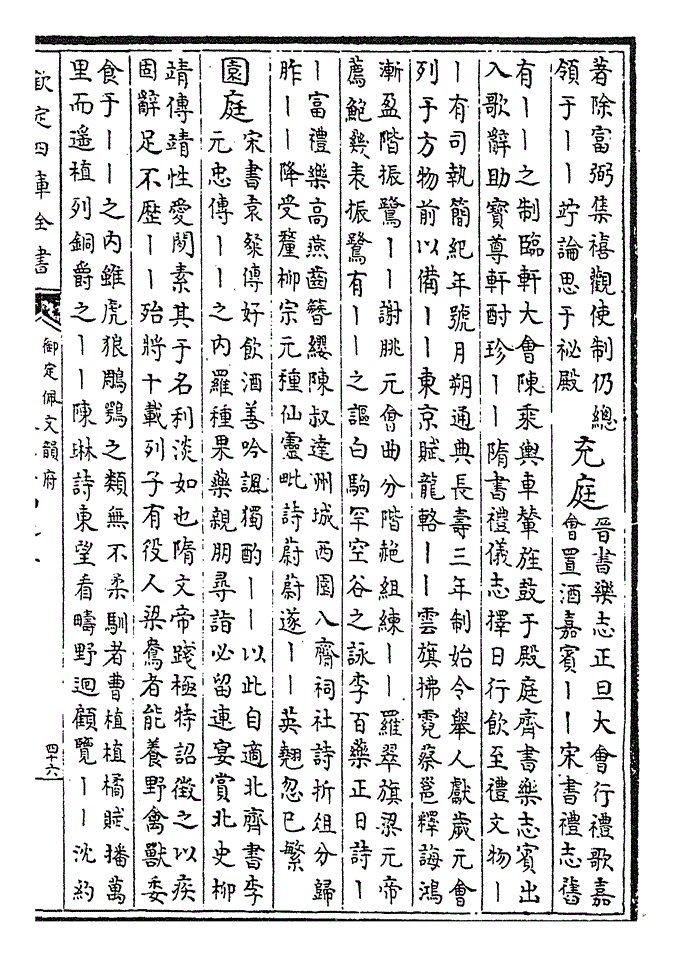 著除富弼集禧觀使制仍總
領于丨丨竚論思于祕殿
充庭
晉書樂志正旦大會行禮歌嘉
會置酒嘉賓丨丨宋書禮志舊
有丨丨之制臨軒大會陳乘輿車輦旌鼓于殿庭齊書樂志賓出
入歌辭助寳尊軒酎珍丨丨隋書禮儀志擇日行飲至禮文物丨
丨有司執簡紀年號月朔通典長壽三年制始令舉人獻歲元會
列于方物前以備丨丨東京賦龍輅丨丨雲旗拂霓蔡邕釋誨鴻
漸盈階振鷺丨丨謝朓元會曲分階赩組練丨丨羅翠旗梁元帝
薦鮑幾表振鷺有丨丨之謳白駒罕空谷之詠李百藥正日詩丨
丨富禮樂高燕齒簪纓陳叔達州城西園八齊祠社詩折俎分歸
胙丨丨降受釐柳宗元種仙靈毗詩蔚蔚遂丨丨英翹忽已繁
園庭
宋書袁粲傳好飲酒善吟諷獨酌丨丨以此自適北齊書李
元忠傳丨丨之內羅種果藥親朋尋詣必留連宴賞北史柳
靖傳靖性愛閒素其于名利淡如也隋文帝踐極特詔徵之以疾
固辭足不歷丨丨殆將十載列子有役人梁鴦者能養野禽獸委
食于丨丨之內雖虎狼鵰鶚之類無不柔馴者曹植植橘賦播萬
里而遙植列銅爵之丨丨陳琳詩東望看疇野迴顧覽丨丨沈約
欽定四庫全書
御定佩文韻府
四十六